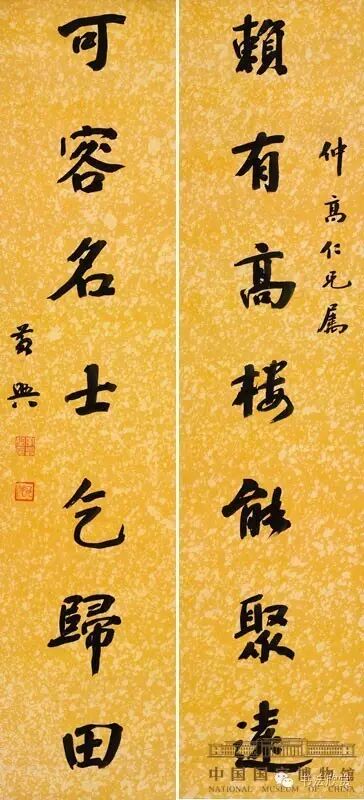 仲高仁兄属
賴有高樓能聚遠
可容名士乞歸田
黃興
中国国家博物馆
NATIONAL MUSEUM OF CHINA